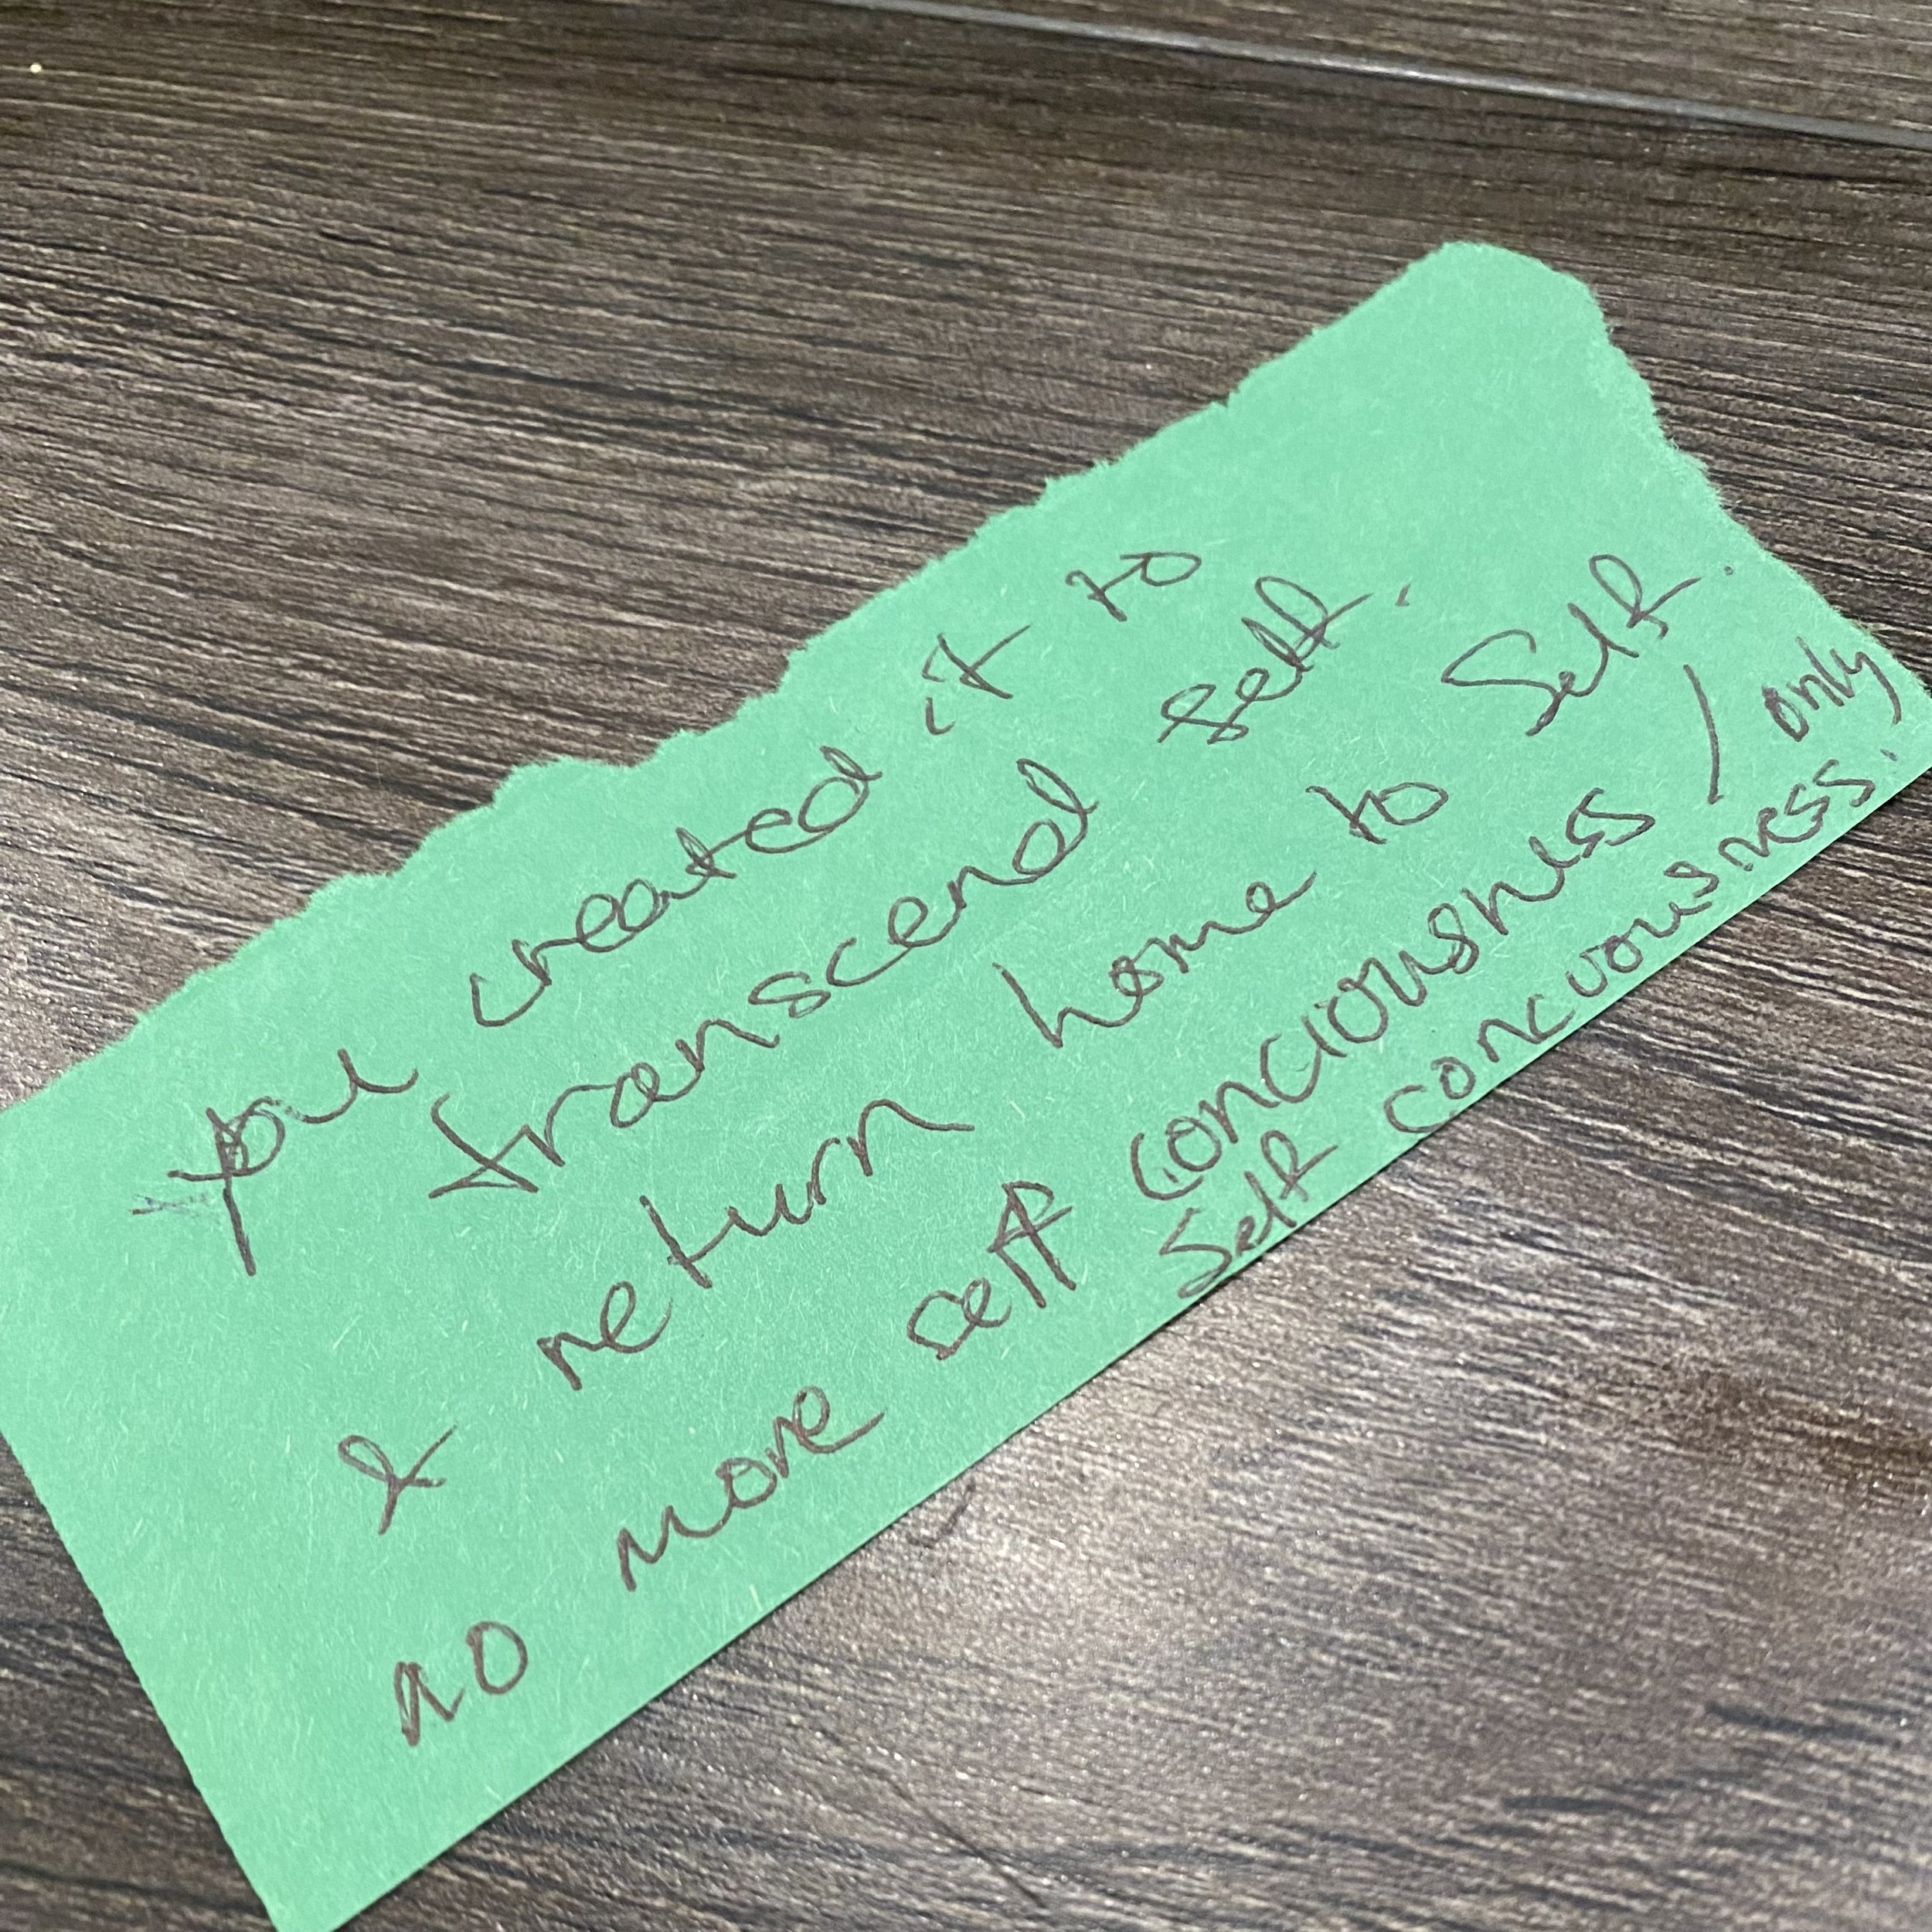 you created it to
transcend self.
& return home to Self.
no more self conciousness / only
Self concuousness.